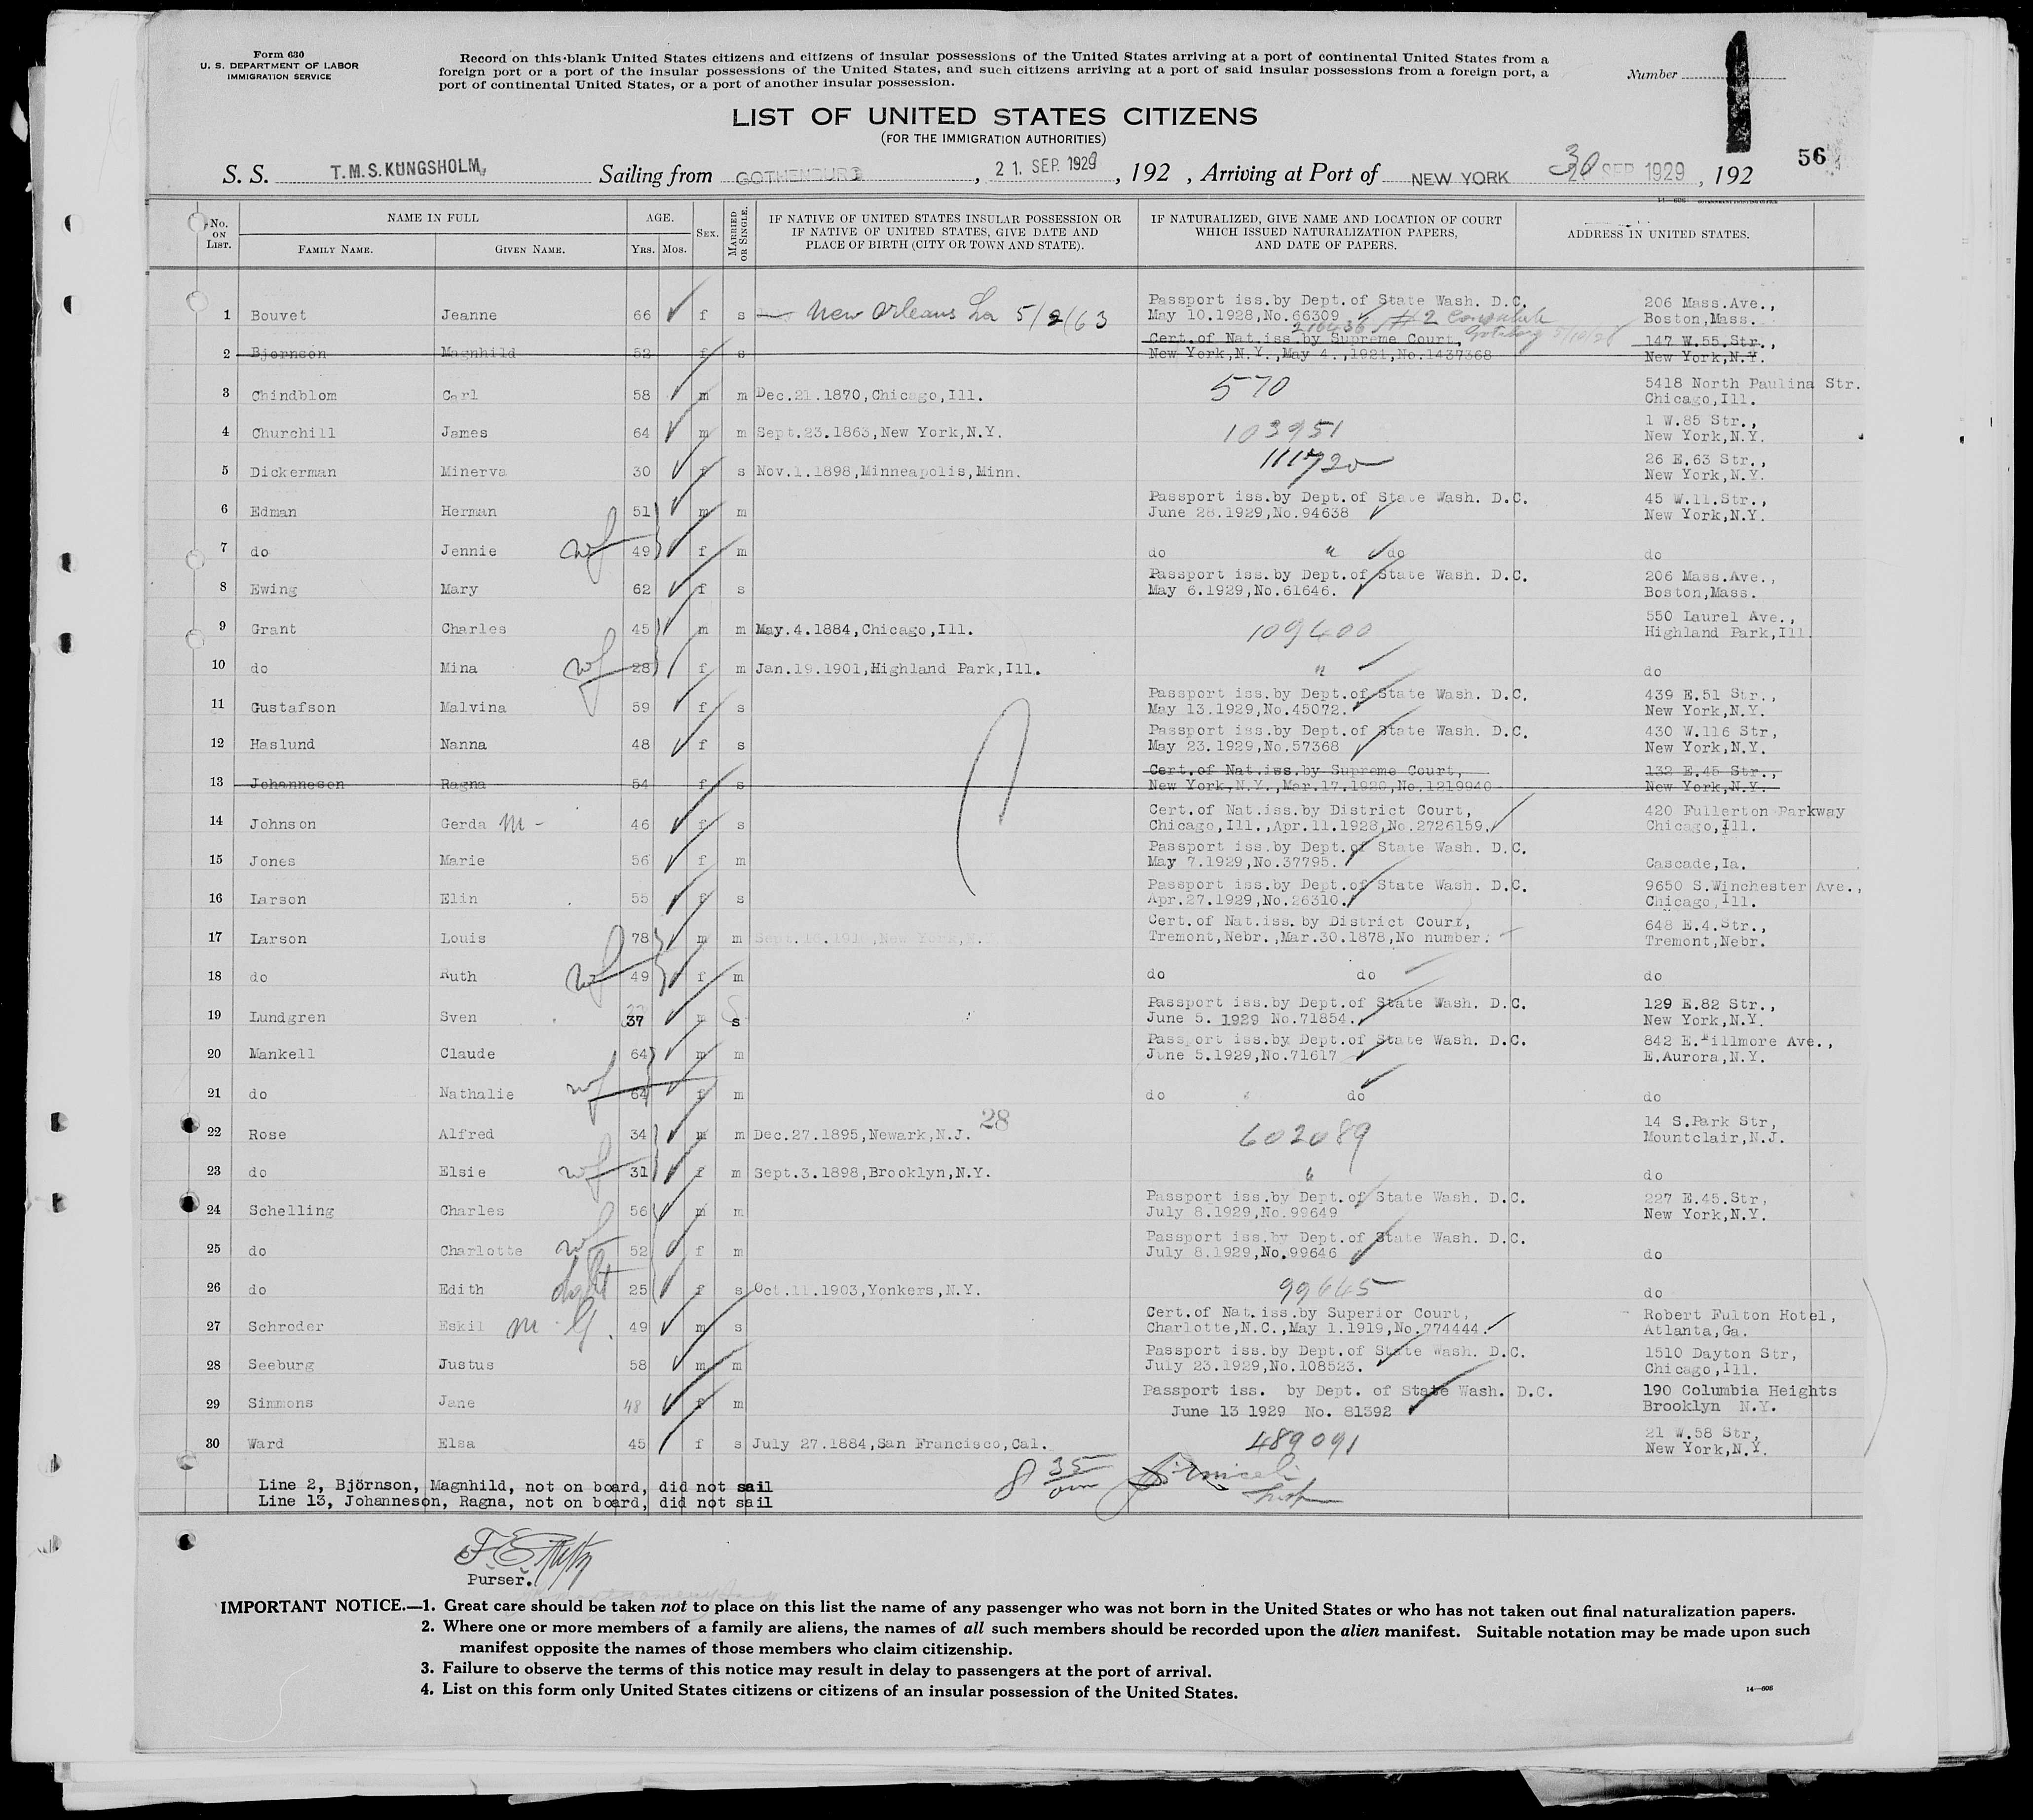 Form 630
U. S. DEPARTMENT OF LABOR
IMMIGRATION SERVICE
Record on this blank United States citizens and citizens of insular possessions of the United States arriving at a port of continental United States from a
foreign port or a port of the insular possessions of the United States, and such citizens arriving at a port of said insular possessions from a foreign port, a
port of continental United States, or a port of another insular possession.
Number
LIST OF UNITED STATES CITIZENS
(FOR THE IMMIGRATION AUTHORITIES)
56
S. S. T.M.S. KUNGSHOLM, Sailing from GOTHENBURG, 21. SEP. 1929, 192 , Arriving at Port of NEW YORK 30 SEP 1929, 192
No. ON LIST. NAME IN FULL AGE. SEX. MARRIED OR SINGLE. IF NATIVE OF UNITED STATES INSULAR POSSESSION OR IF NATIVE OF UNITED STATES, GIVE DATE AND PLACE OF BIRTH (CITY OR TOWN AND STATE). IF NATURALIZED, GIVE NAME AND LOCATION OF COURT WHICH ISSUED NATURALIZATION PAPERS, AND DATE OF PAPERS. ADDRESS IN UNITED STATES.
FAMILY NAME. GIVEN NAME. YRS. MOS.
1 Bouvet Jeanne 66 f s New Orleans La 5/2/63 Passport iss.by Dept.of State Wash. D.C. May 10.1928,No.66309 216436 #2 Consulate Goteborg 5/10/28 206 Mass.Ave., Boston,Mass.
2 Bjornson Magnhild 52 f s Cert.of Nat.iss.by Supreme Court, New York,N.Y.,May 4.,1921,No.1437368 147 W.55.Str., New York,N.Y.
3 Chindblom Carl 58 m m Dec.21.1870,Chicago,Ill. 570 5418 North Paulina Str. Chicago,Ill.
4 Churchill James 64 m m Sept.23.1863,New York,N.Y. 103951 1 W.85 Str., New York,N.Y.
5 Dickerman Minerva 30 f s Nov.1.1898,Minneapolis,Minn. 111720 26 E.63 Str., New York,N.Y.
6 Edman Herman 51 m m Passport iss.by Dept.of State Wash. D.C. June 28.1929,No.94638 45 W.11.Str., New York,N.Y.
7 do Jennie wf 49 f m do " do do
8 Ewing Mary 62 f s Passport iss.by Dept.of State Wash. D.C. May 6.1929,No.61646. 206 Mass.Ave., Boston,Mass.
9 Grant Charles 45 m m May.4.1884,Chicago,Ill. 109400 550 Laurel Ave., Highland Park,Ill.
10 do Mina wf 28 f m Jan.19.1901,Highland Park,Ill. " do
11 Gustafson Malvina 59 f s Passport iss.by Dept.of State Wash. D.C. May 13.1929,No.45072. 439 E.51 Str., New York,N.Y.
12 Haslund Nanna 48 f s Passport iss.by Dept.of State Wash. D.C. May 23.1929,No.57368 430 W.116 Str, New York,N.Y.
13 Johanneson Ragna 54 f s Cert.of Nat.iss.by Supreme Court, New York,N.Y.,Mar.17.1920,No.1219940 132 E.45 Str., New York,N.Y.
14 Johnson Gerda M - 46 f s Cert.of Nat.iss.by District Court, Chicago,Ill.,Apr.11.1928,No.2726159. 420 Fullerton Parkway Chicago,Ill.
15 Jones Marie 56 f m Passport iss.by Dept.of State Wash. D.C. May 7.1929,No.37795. Cascade,Ia.
16 Larson Elin 55 f s Passport iss.by Dept.of State Wash. D.C. Apr.27.1929,No.26310. 9650 S.Winchester Ave., Chicago,Ill.
17 Larson Louis 78 m m Cert.of Nat.iss.by District Court, Tremont,Nebr.,Mar.30.1878,No number. 648 E.4.Str., Tremont,Nebr.
18 do Ruth wf 49 f m do do do
19 Lundgren Sven 37 m s Passport iss.by Dept.of State Wash. D.C. June 5. 1929 No.71854. 129 E.82 Str., New York,N.Y.
20 Mankell Claude 64 m m Passport iss.by Dept.of State Wash. D.C. June 5.1929,No.71617 842 E.Fillmore Ave., E.Aurora,N.Y.
21 do Nathalie wf 64 f m do do do
22 Rose Alfred 34 m m Dec.27.1895,Newark,N.J. 28 602089 14 S.Park Str, Mountclair,N.J.
23 do Elsie wf 31 f m Sept.3.1898,Brooklyn,N.Y. " do
24 Schelling Charles 56 m m Passport iss.by Dept.of State Wash. D.C. July 8.1929,No.99649 227 E.45.Str, New York,N.Y.
25 do Charlotte wf 52 f m Passport iss.by Dept.of State Wash. D.C. July 8.1929,No.99646 do
26 do Edith daht 25 f s Oct.11.1903,Yonkers,N.Y. 99645 do
27 Schroder Eskil M. G. 49 m s Cert.of Nat.iss.by Superior Court, Charlotte,N.C.,May 1.1919,No.774444. Robert Fulton Hotel, Atlanta,Ga.
28 Seeburg Justus 58 m m Passport iss.by Dept.of State Wash. D.C. July 23.1929,No.108523. 1510 Dayton Str, Chicago,Ill.
29 Simmons Jane 48 f m Passport iss. by Dept. of State Wash. D.C. June 13 1929 No. 81392 190 Columbia Heights Brooklyn N.Y.
30 Ward Elsa 45 f s July 27.1884,San Francisco,Cal. 489091 21 W.58 Str, New York,N.Y.
8 35 am
Line 2, Björnson, Magnhild, not on board, did not sail
Line 13, Johanneson, Ragna, not on board, did not sail
Purser.
IMPORTANT NOTICE.—1. Great care should be taken not to place on this list the name of any passenger who was not born in the United States or who has not taken out final naturalization papers.
2. Where one or more members of a family are aliens, the names of all such members should be recorded upon the alien manifest. Suitable notation may be made upon such
manifest opposite the names of those members who claim citizenship.
3. Failure to observe the terms of this notice may result in delay to passengers at the port of arrival.
4. List on this form only United States citizens or citizens of an insular possession of the United States.
14—606